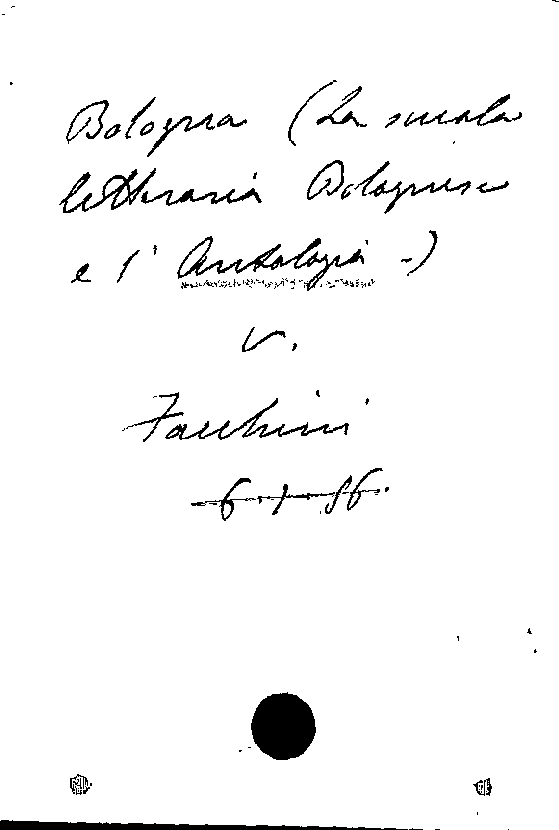 Bologna (La scuola
letteraria Bolognese
e l' Antologia -)
v.
Facchini
6.1.86.